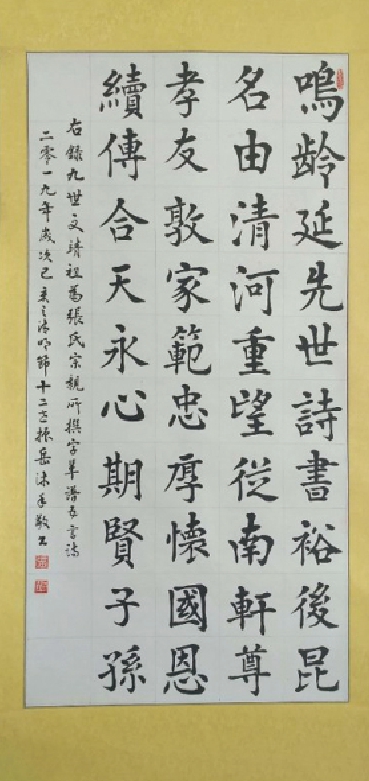 鳴齡延先世詩書裕後昆
名由清河重望從南軒尊
孝友敦家範忠厚懷國恩
續傳合天永心期賢子孫
右錄九世文靖祖為張氏宗親所撰字輩譜五言詩
二零一九年歲次己亥之清明節十二世振岳沐手敬書